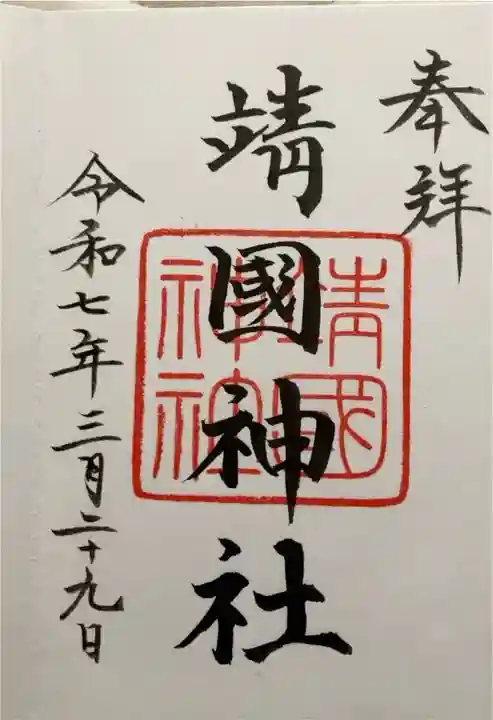 奉拝
靖國神社
靖國神社
令和七年三月二十九日